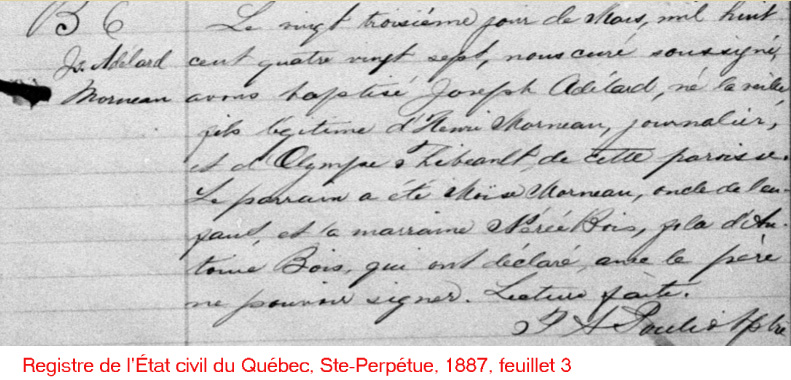 B 6
Js. Adélard
Morneau
Le vingt troisième jour de Mars, mil huit
cent quatre vingt sept, nous curé soussigné,
avons baptisé Joseph Adélard, né la veille
fils légitime d'Henri Morneau, journalier,
et d'Olympe Thibeault, de cette paroisse.
Le parrain a été Moïse Morneau, oncle de l'en-
fant, et la marraine Bois, d'An-
toine Bois, qui ont déclaré, avec le père
ne pouvoir signer. Lecture faite.
Ptre
Registre de l'État civil du Québec, Ste-Perpétue, 1887, feuillet 3